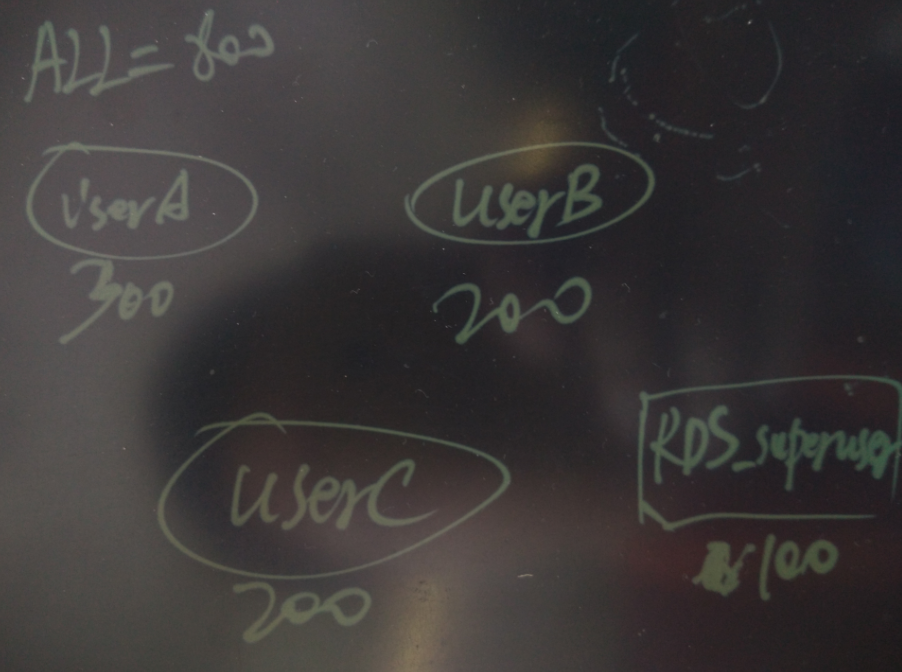 ALL = 800
userA
300
userB
200
userC
200
RDS_superuser
100